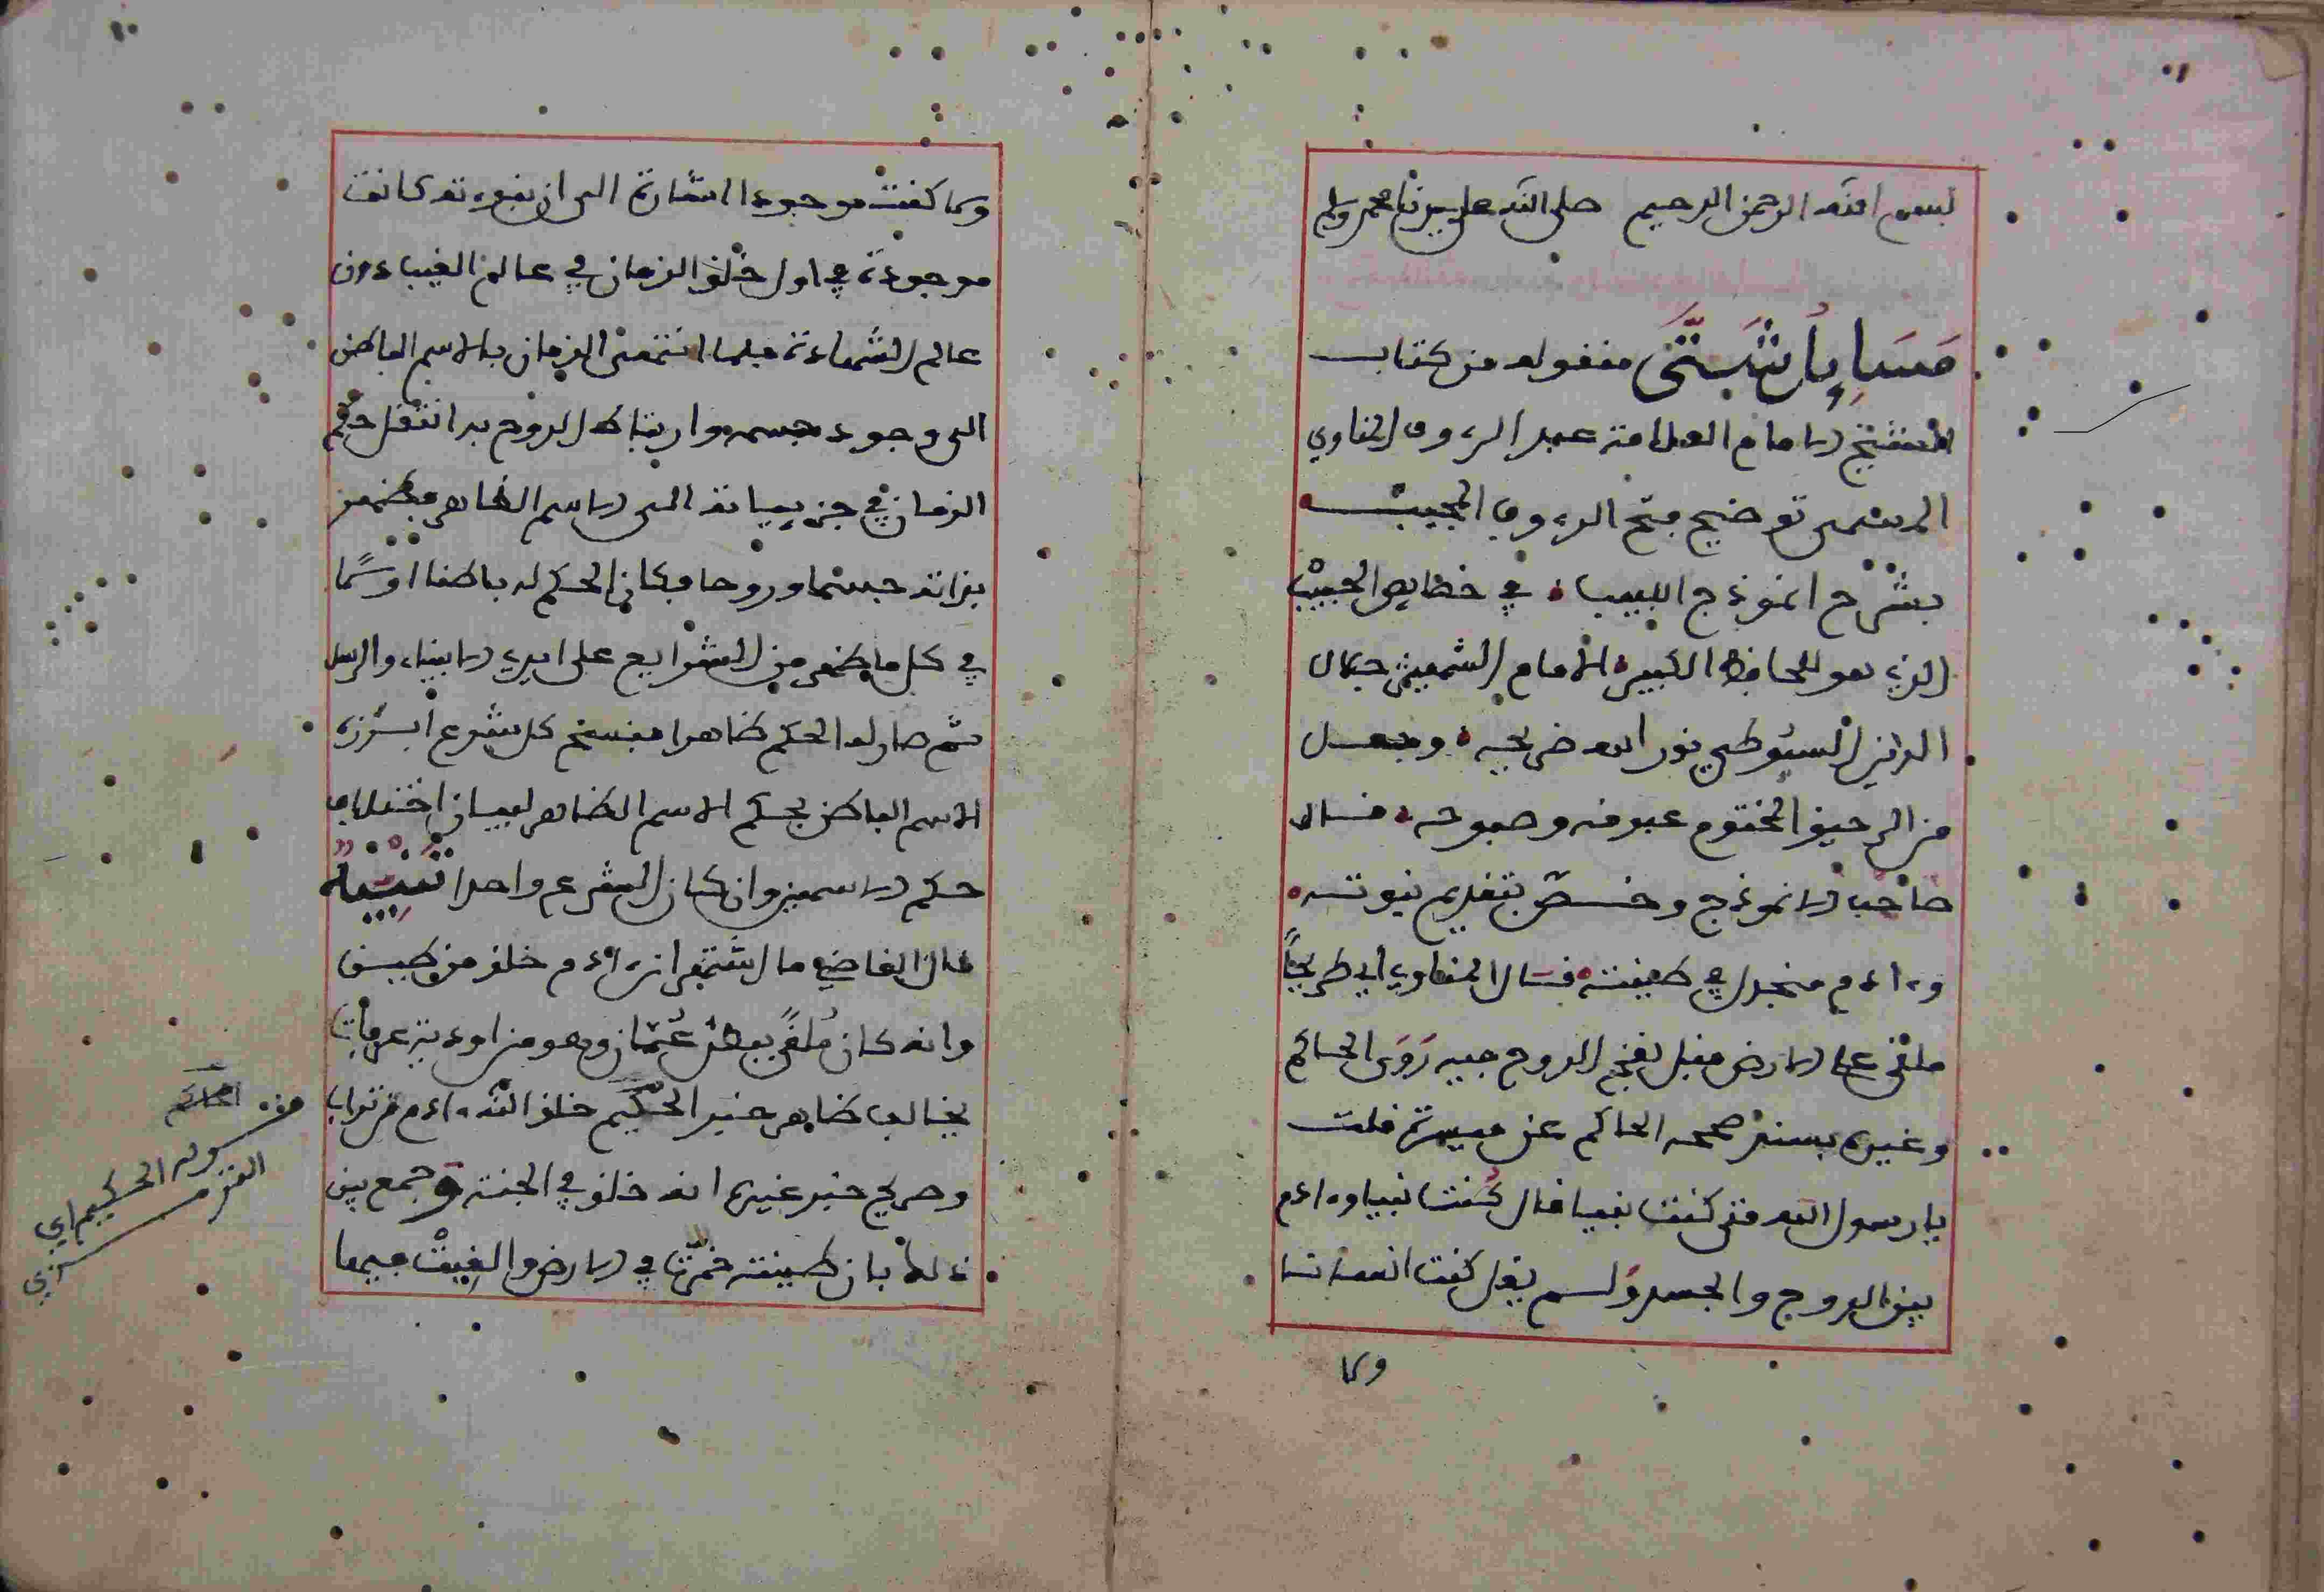 بسم الله الرحمن الرحيم صلى الله على سيدنا محمد وسلم
مسايل شتى منقولة من كتاب
الشيخ الامام العلامة عبد الرءوف المناوي
المسمى توضيح فتح الرءوف المجيب
بشرح انموذج اللبيب في خصايص الحبيب
الذي هو للحافظ الكبير الامام الشهير جمال
الدين السيوطي نور الله ضريحه وجعل
من الرحيق المختوم غبوقه وصبوحه قال
صاحب الانموذج وخص بتقديم نبوته
وءادم منجدل في طينته قال المناوي أي طريحاً
ملقى على الارض قبل نفخ الروح فيه رَوَى الحاكم
وغيره بسند صححه الحاكم عن ميسرة قلت
يا رسول الله متى كنت نبيا قال كُنت نبيا وءادم
بين الروح والجسد ولم يقل كنت انسانا
ولا
ولا كنت موجودا اشارة الى ان نبوءته كانت
موجودة في اول خلق الزمان في عالم الغيب دون
عالم الشهادة فلما انتهى الزمان بالاسم الباطن
الى وجود جسمه وارتباط الروح به انتقل حكم
الزمان في جريانه الى الاسم الظاهر فظهر
بذاته جسما وروحا فكان الحكم له باطنا اوَّلًا
في كل ما ظهر من الشرايع على ايدي الانبياء والرسل
ثم صار له الحكم ظاهرا فنسخ كل شرع أبرزه
الاسم الباطن بحكم الاسم الظاهر لبيان اختلاف
حكم الاسمين وان كان الشرع واحدا تنبيه
قال القاضي ما اشتهر ان ءادم خلق من طين
وانه كان مُلقًى ببطن عُمّان وهو من اودية عرفات
يخالف ظاهر خبر الحكيم خلق الله ءادم من تراب
وصريح خبر غيره انه خلق في الجنة وجمع بين
ذلك بان طينته خمرت في الارض والقيت فيها
قوله الحكيم اي